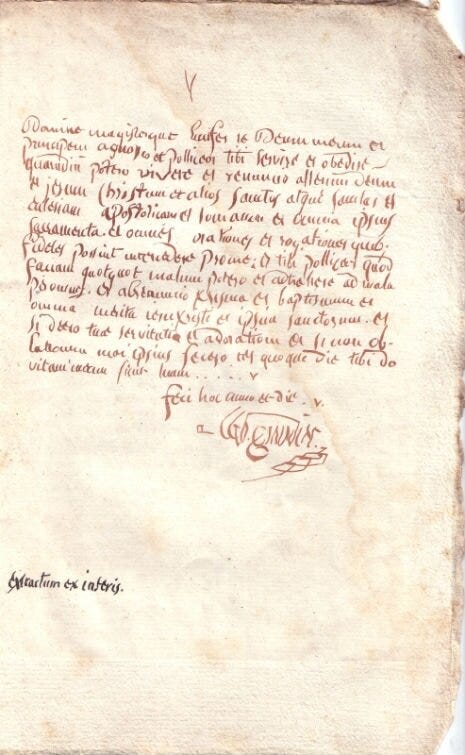 Domine magisterque Lucifer te Deum meum et
principem agnosco et polliceor tibi servire et obedire
quandiu potero vivere et renuncio alterium Deum
et Jesum Christum et alios sanctos atque sanctas et
ecclesiam apostolicam et romanam et omnia ipsius
sacramenta et omnes orationes et rogationes quib.
fideles possint intercedere pro me; et tibi polliceor quod
faciam quotquot malum potero et attrahere ad mala
per omnes. et abrenuncio chrisma et baptismum et
omnia merita et ipsius sanctorum. et
si deero tuae servitutis et adorationi et si non ob-
lationem mei ipsius fecero ter quoque die tibi do
vitam meam sicut tuam . . . . . v
feci hoc anno et die . v.
extractum ex inferis.